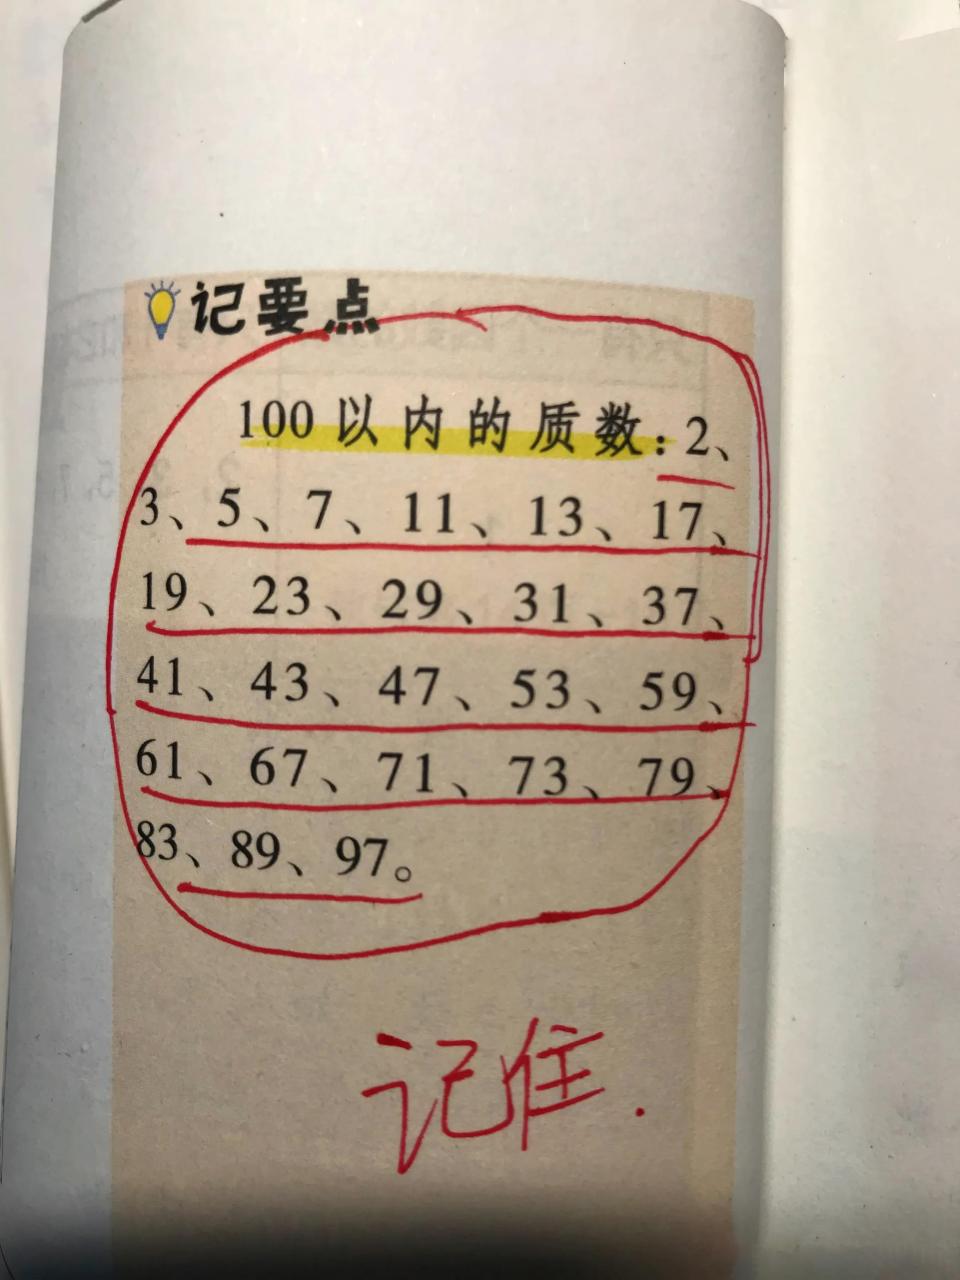 记要点
100以内的质数：2、
3、5、7、11、13、17、
19、23、29、31、37、
41、43、47、53、59、
61、67、71、73、79、
83、89、97。
记住.